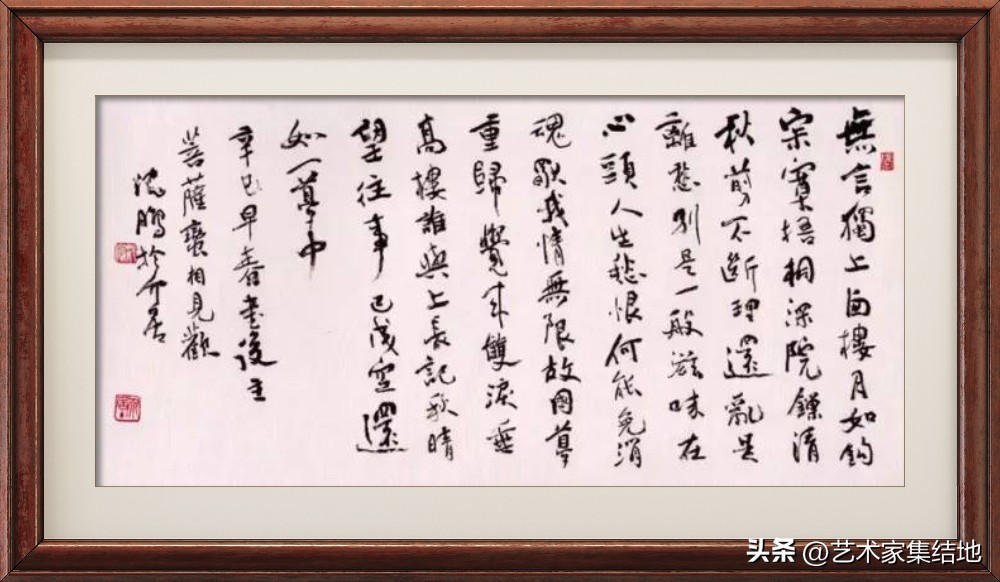 無言獨上西樓月如鈎
寂寞梧桐深院鎖清
秋剪不斷理還亂是
離愁別是一般滋味在
心頭人生愁恨何能免消
魂獨我情無限故國夢
重歸覺來雙淚垂
高樓誰與上長記秋晴
望往事已成空還
如一夢中
辛巳早春書後主
菩薩蠻相見歡
沈鵬於介居
头条 @艺术家集结地